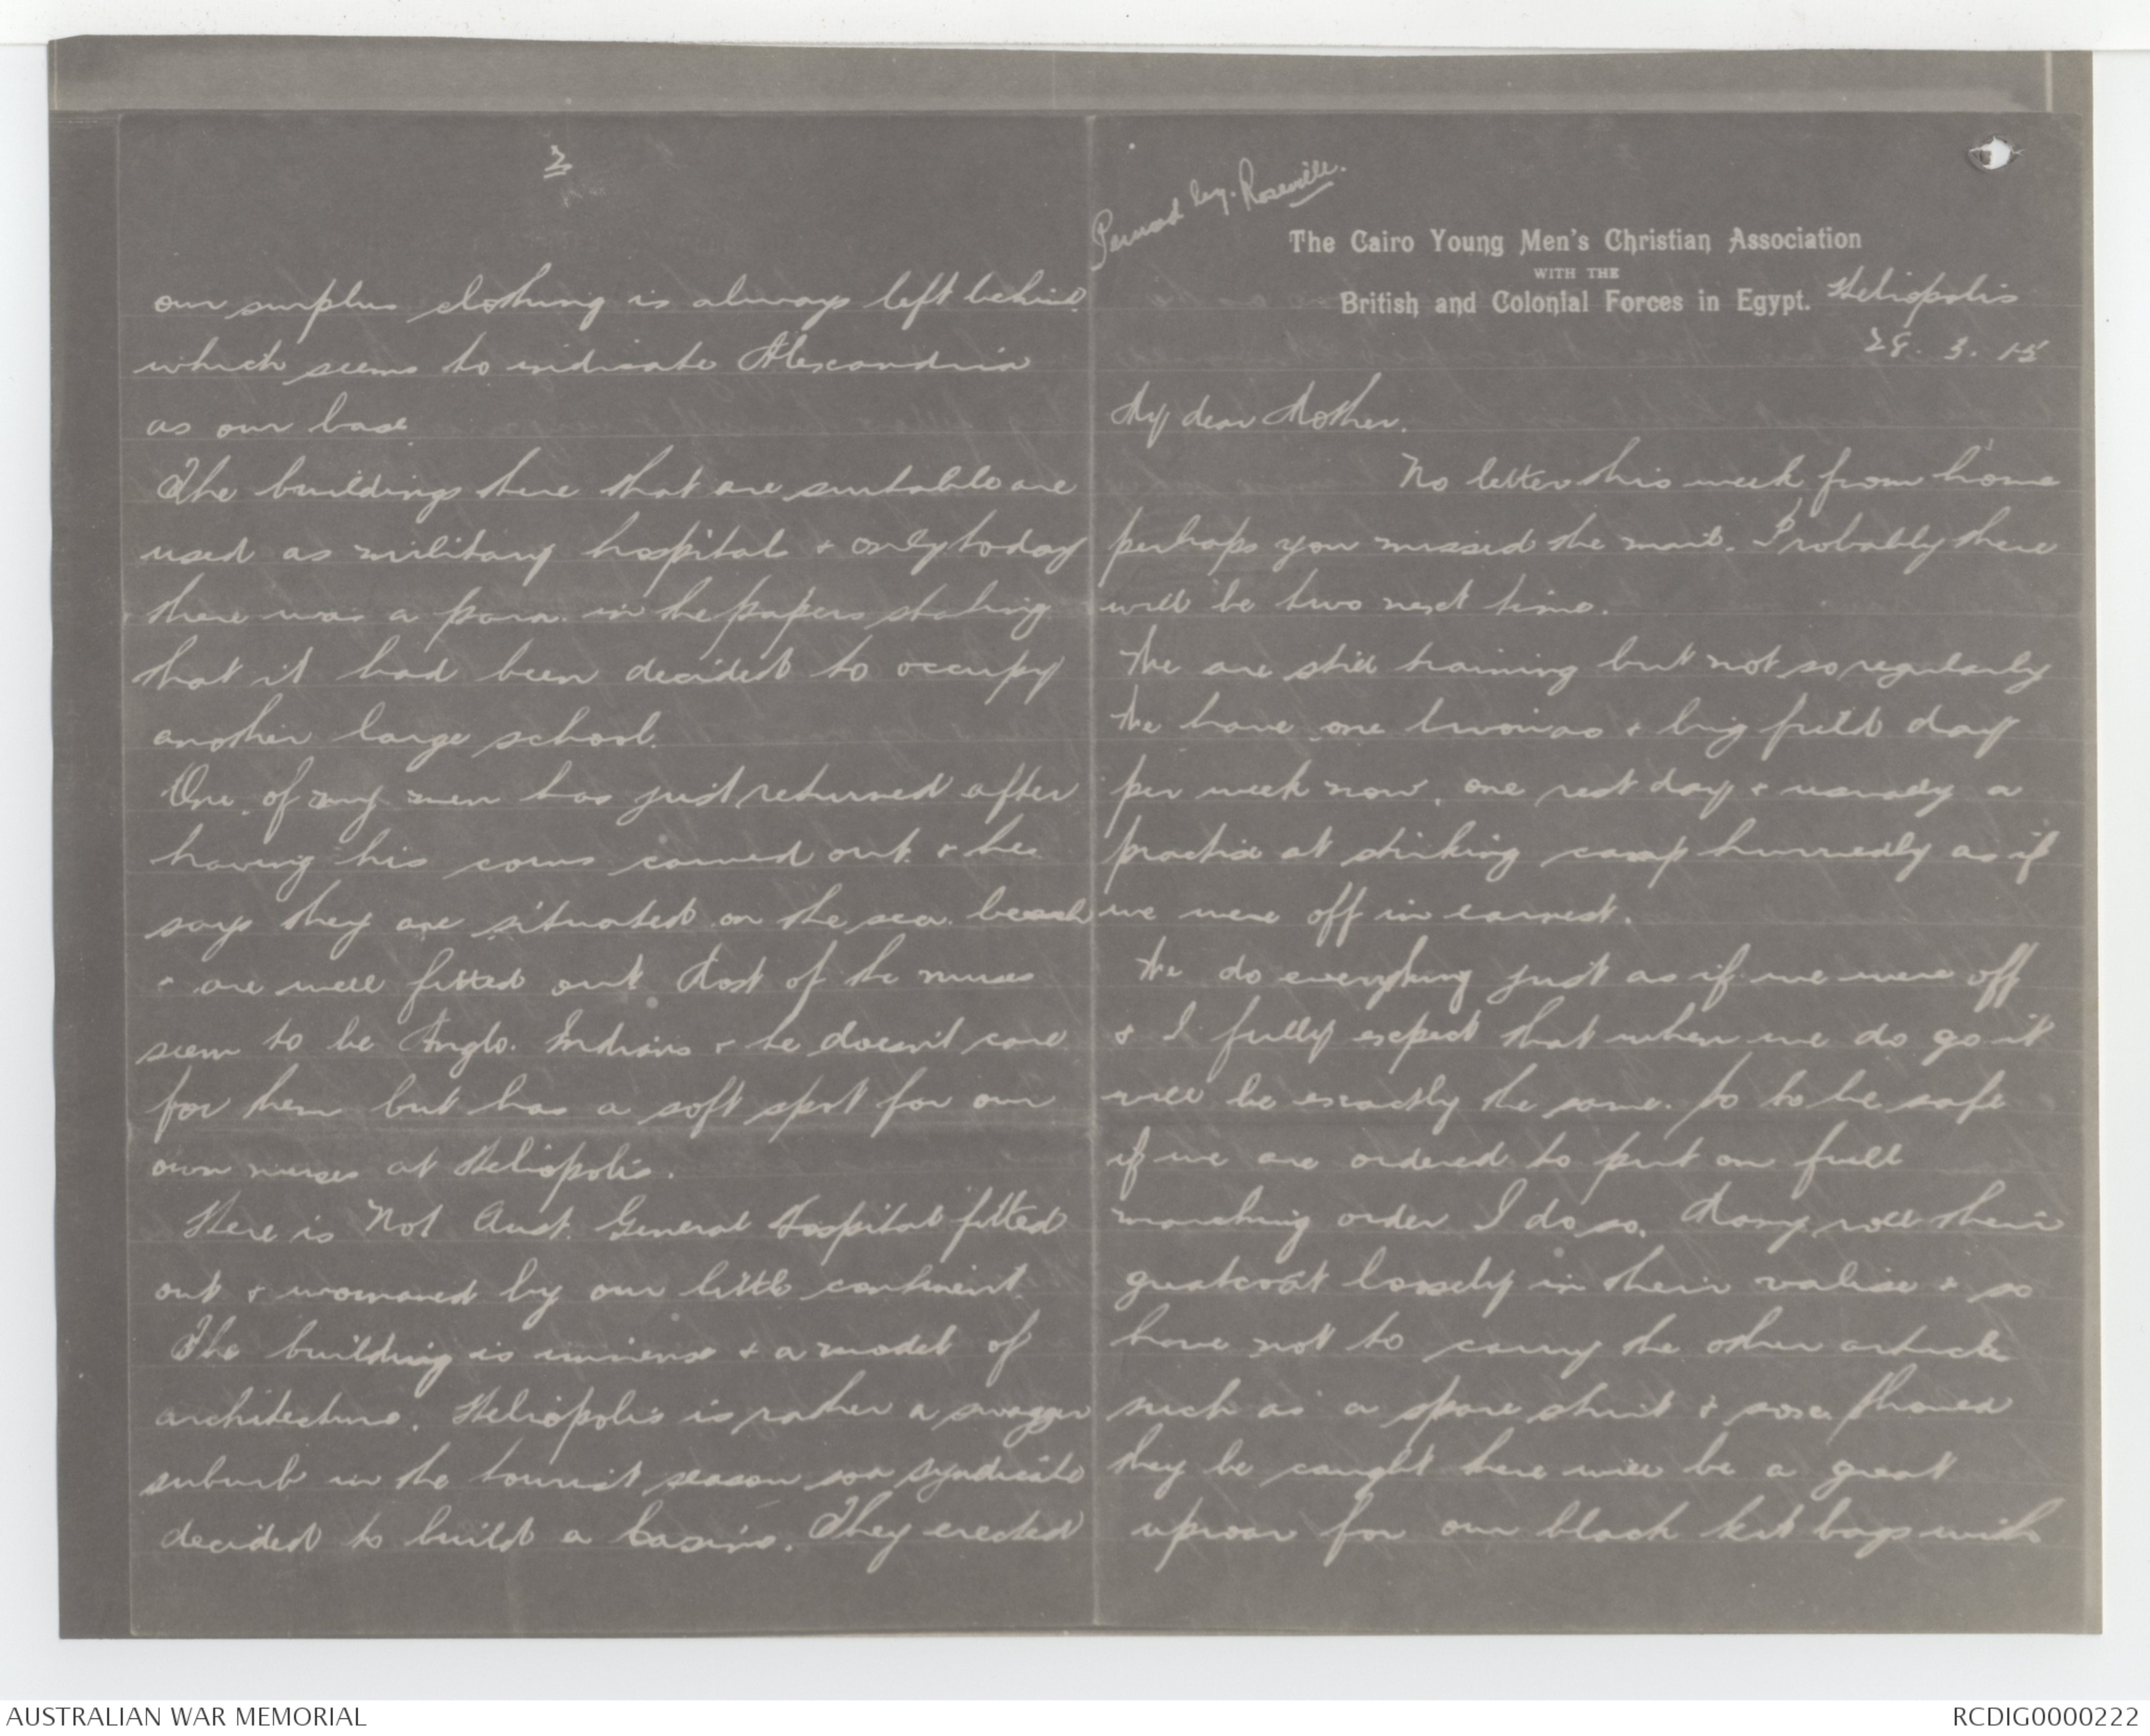 The Cairo Young Men's Christian Association
WITH THE
British and Colonial Forces in Egypt.
Heliopolis
28. 3. 15
My dear Mother.
No letter this week from home
perhaps you missed the mail. Probably there
will be two next time.
We are still training but not so regularly
We have one bivouac & big field day
per week now, one rest day & usually a
practice at striking camp hurriedly as if
we were off in earnest.
We do everything just as if we were off
& I fully expect that when we do go it
will be exactly the same. So to be safe
if we are ordered to put on full
marching order I do so. Many roll their
greatcoat loosely in their valise & so
have not to carry the other article
such as a spare shirt & sox. Should
they be caught there will be a great
uproar for our black kit bags with
2
our surplus clothing is always left behind
which seems to indicate Alexandria
as our base
The buildings there that are suitable are
used as military hospitals & only today
there was a para. in the papers stating
that it had been decided to occupy
another large school.
One of my men has just returned after
having his corns carved out & he
says they are situated on the sea beach
& are well fitted out. Most of the nurses
seem to be Anglo. Indians & he doesn't care
for them but has a soft spot for our
own nurses at Heliopolis.
Here is No1 Aust. General Hospital fitted
out & womaned by our little continent.
The building is immense & a model of
architecture. Heliopolis is rather a swagger
suburb in the tourist season so a syndicate
decided to build a Casino. They erected
AUSTRALIAN WAR MEMORIAL
RCDIG0000222